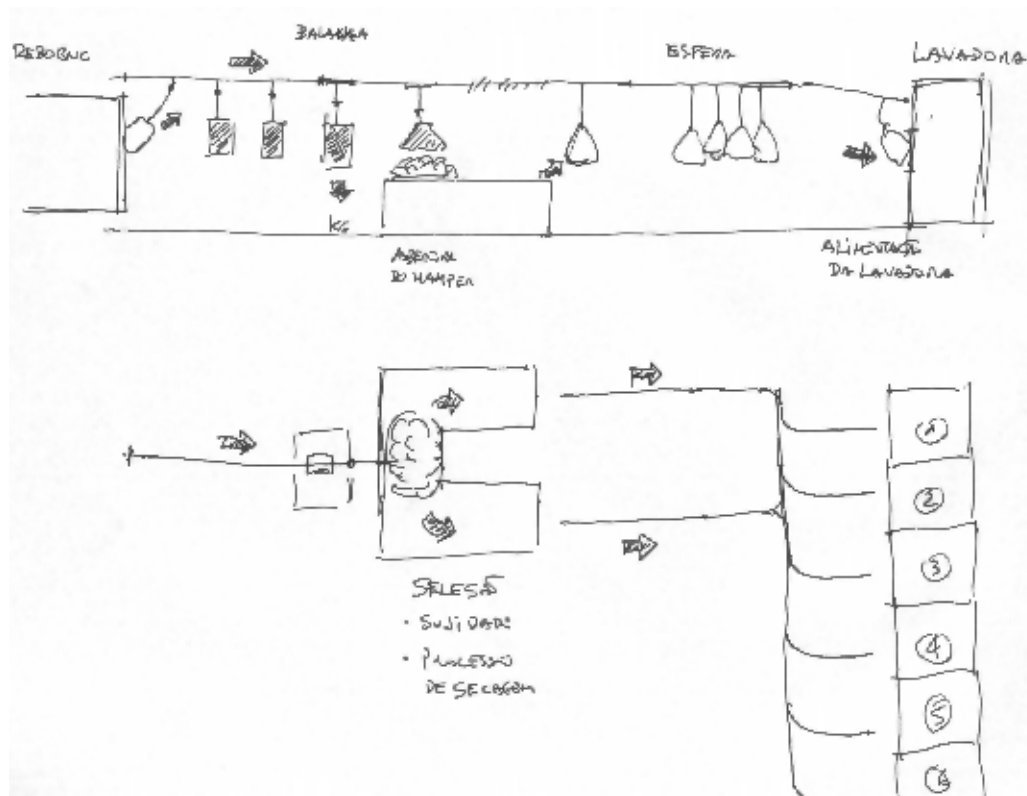 REBOQUE
BALANÇA
ESPERA
LAVADORA
KG
ABERTURA
DO HAMPER
ALIMENTAÇÃO
DA LAVADORA
SELESÃO
• SUJIDADE
• PROCESSO
DE SECAGEM
1
2
3
4
5
6